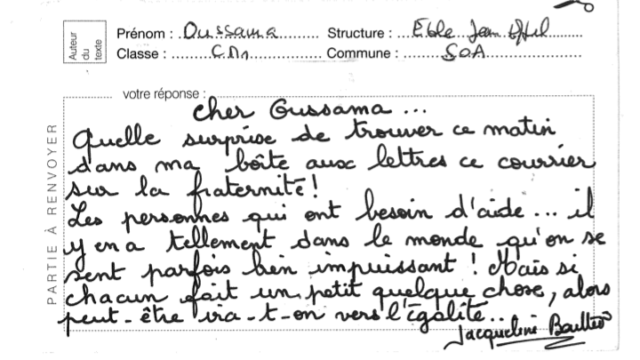 Auteur du texte
Prénom : Oussama Structure : École Jean Effel
Classe : CM1 Commune : SOA
votre réponse :
PARTIE À RENVOYER
cher Oussama...
Quelle surprise de trouver ce matin
dans ma boîte aux lettres ce courrier
sur la fraternité !
Les personnes qui ont besoin d'aide... il
y en a tellement dans le monde qu'on se
sent parfois bien impuissant ! Mais si
chacun fait un petit quelque chose, alors
peut-être ira-t-on vers l'égalité...
Jacqueline